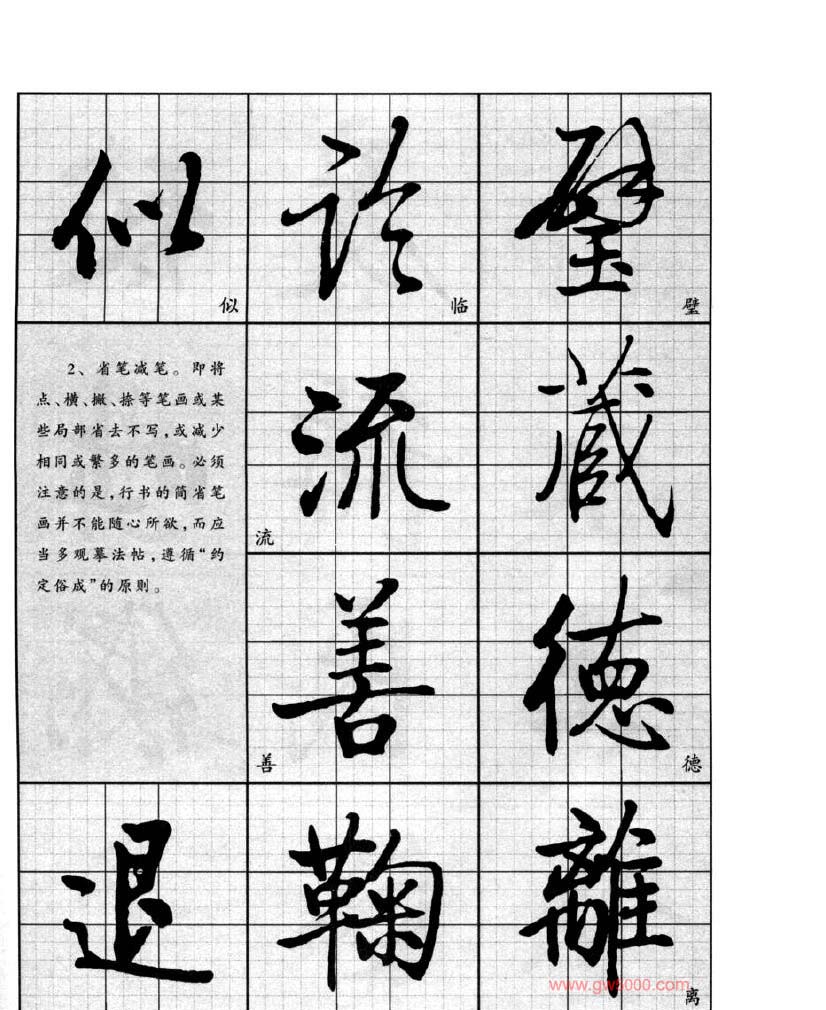 似 臨 璧
似 临 璧
2、省笔减笔。即将
点、横、撇、捺等笔画或某
些局部省去不写，或减少
相同或繁多的笔画。必须
注意的是，行书的简省笔
画并不能随心所欲，而应
当多观摹法帖，遵循“约
定俗成”的原则。
流 藏
流
善 德
善 德
退 鞠 離
离
www.gw5000.com